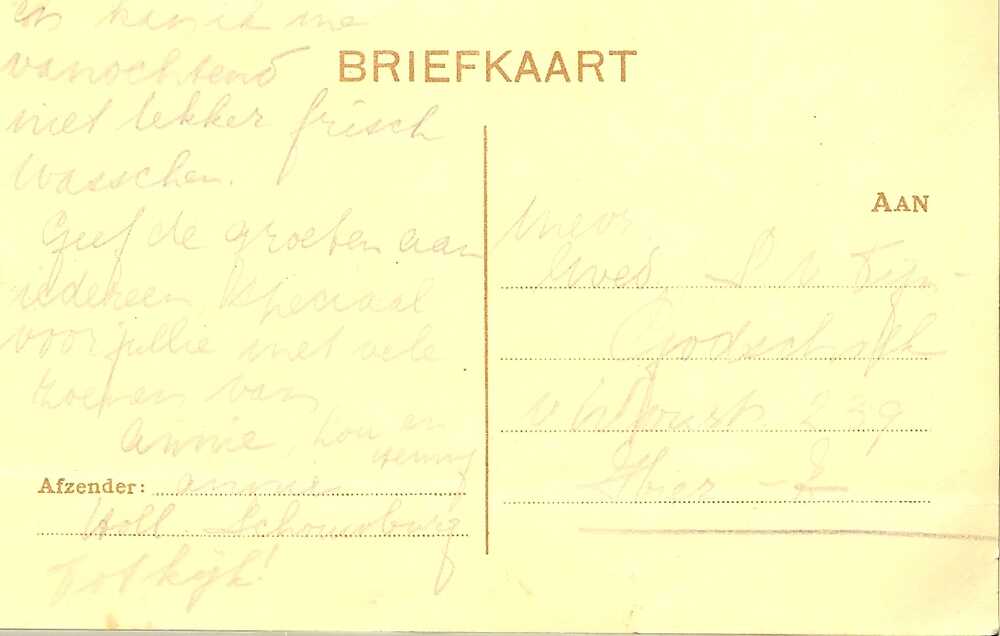 en kan ik me
vanochtend
niet lekker frisch
wasschen.
Geef de groeten aan
iedereen speciaal
voor jullie met vele
zoenen van
Annie, Lou en
Henny
Afzender: Annie
Holl. Schouwburg
Tot kijk!
BRIEFKAART
AAN
Mevr.
Wed. S. v.
Godschalk
239
Hier